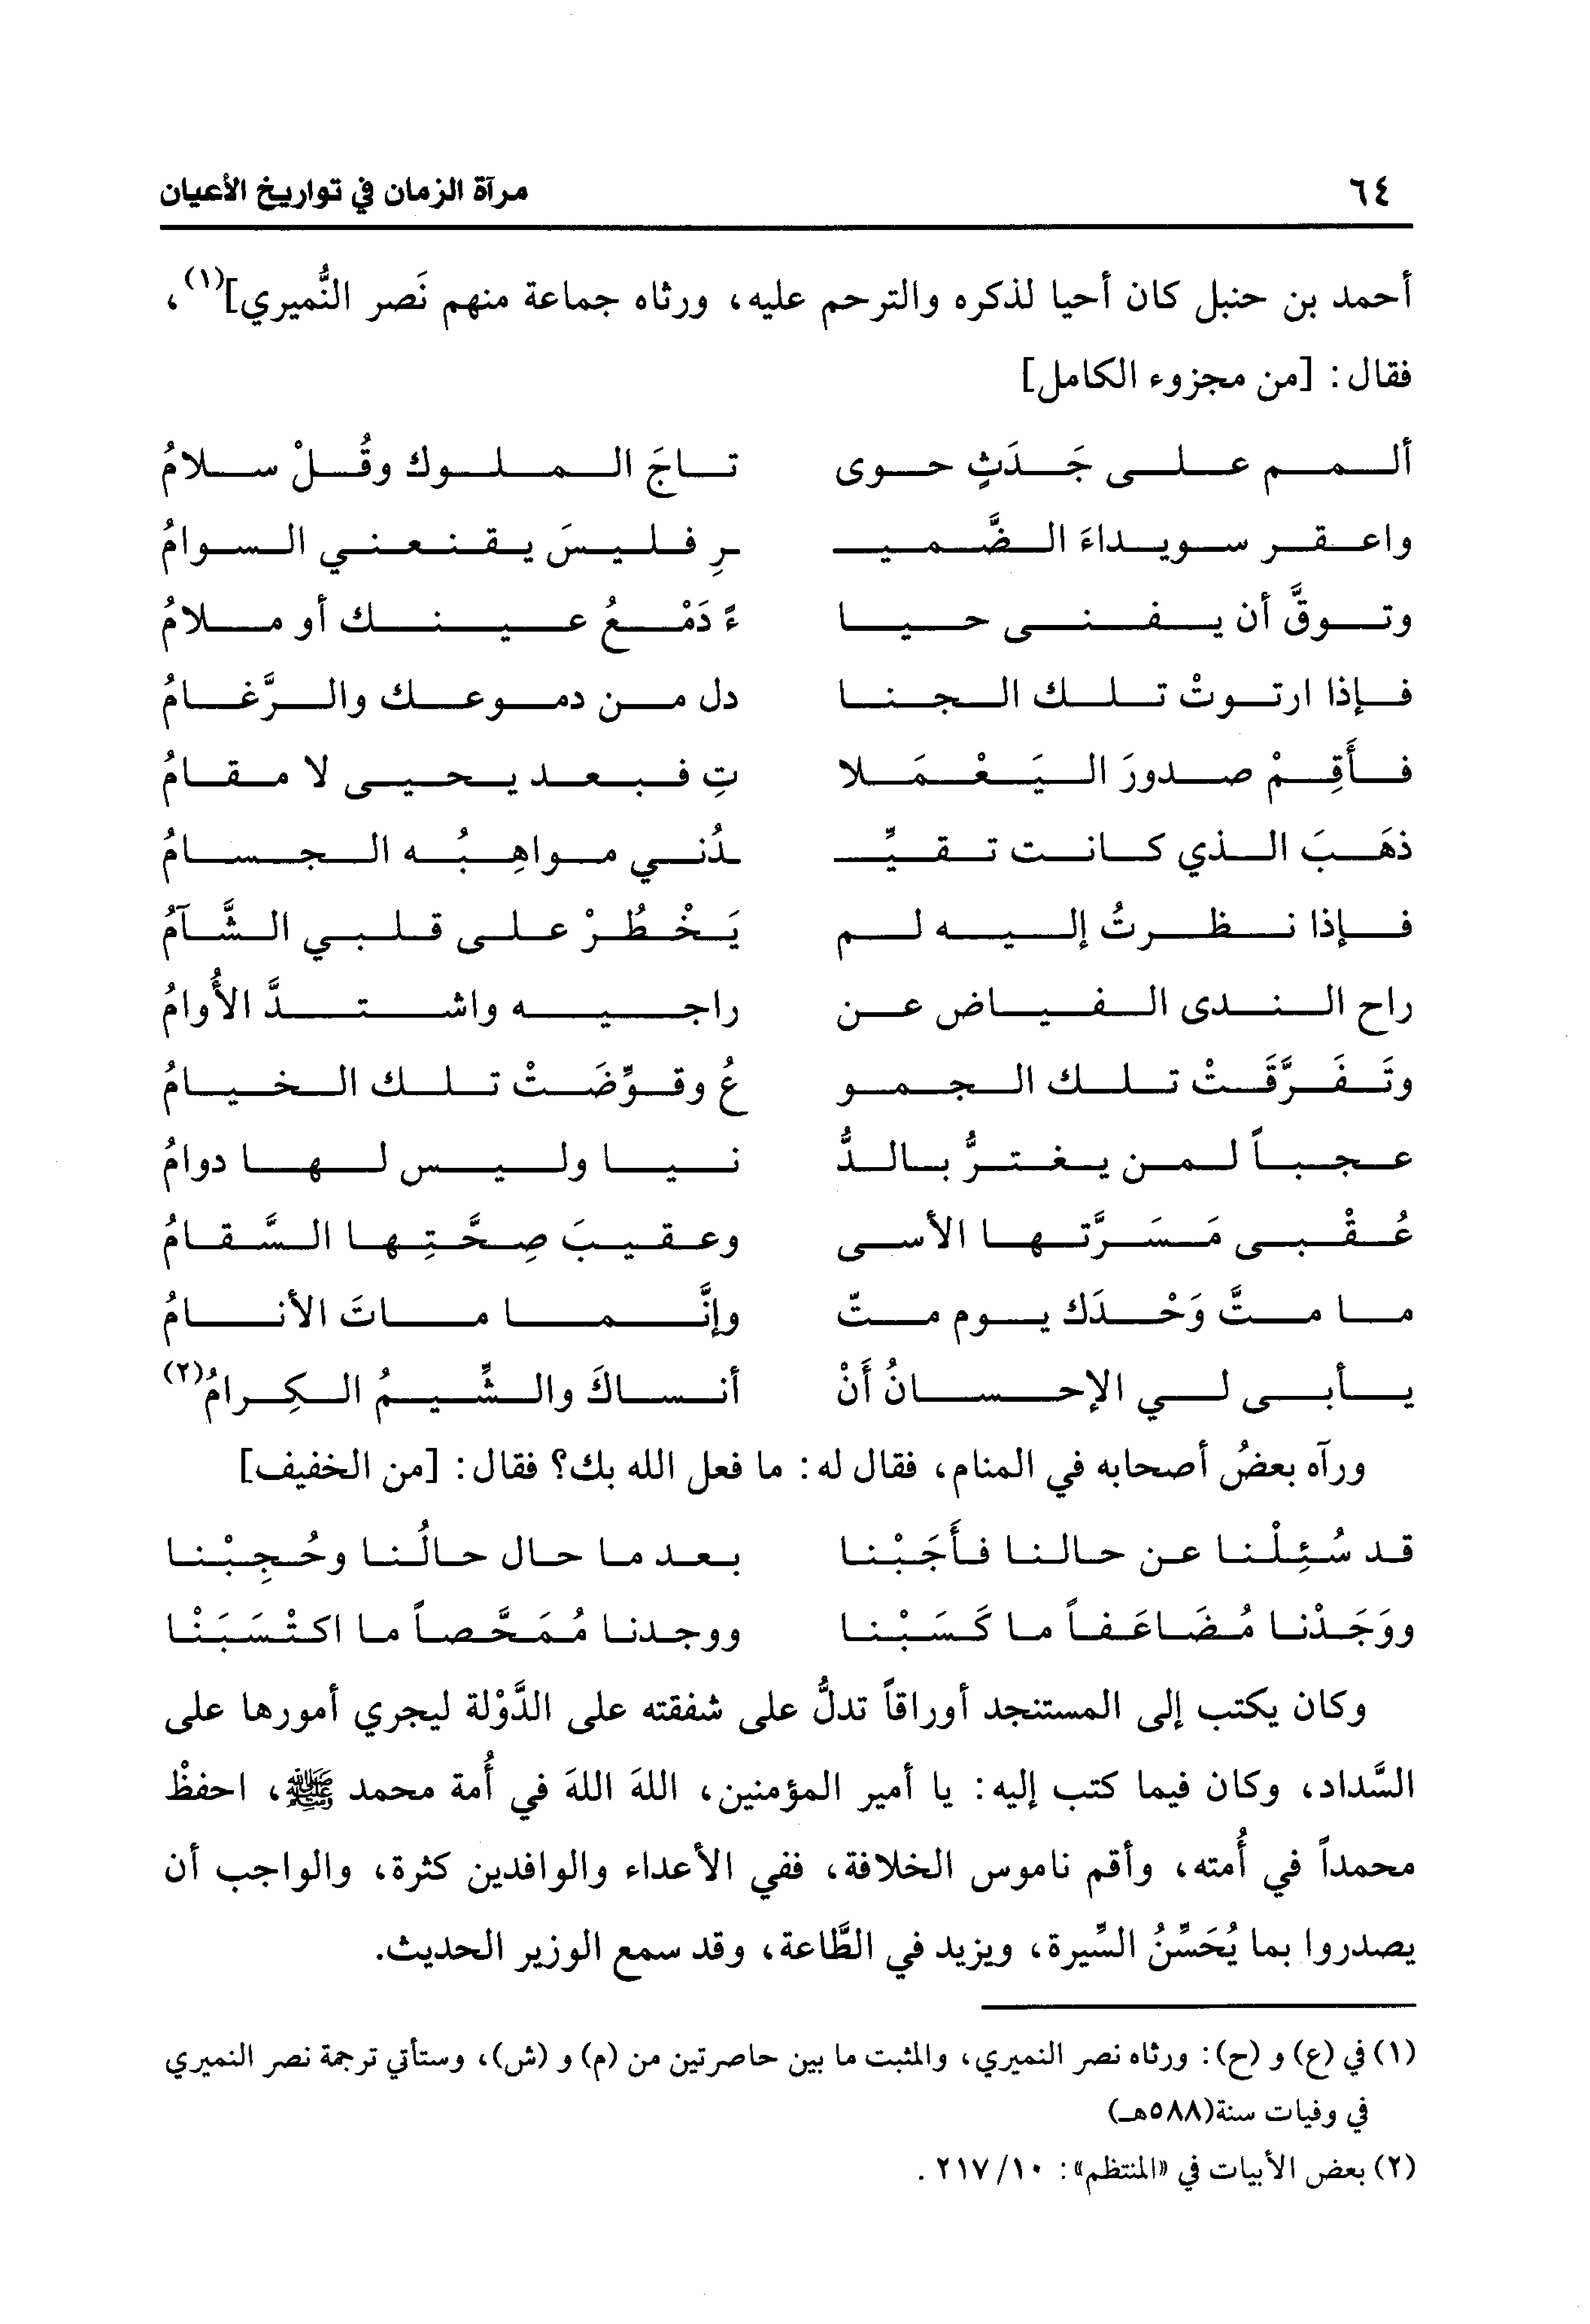 ٦٤ مرآة الزمان في تواريخ الأعيان
أحمد بن حنبل كان أحيا لذكره والترحم عليه، ورثاه جماعة منهم نَصر النُّميري](١)،
فقال: [من مجزوء الكامل]
ألمم على جَدَثٍ حوى تاجَ الملوك وقُلْ سلامُ
واعقر سويداءَ الضَّميـ ـرِ فليسَ يقنعني السوامُ
وتوقَّ أن يفنى حيا ءً دَمْعُ عينك أو ملامُ
فإذا ارتوتْ تلك الجنا دل من دموعك والرَّغامُ
فأَقِمْ صدورَ اليَعْمَلا تِ فبعد يحيى لا مقامُ
ذهَبَ الذي كانت تقيِّـ ـدُني مواهِبُه الجسامُ
فإذا نظرتُ إليه لم يَخْطُرْ على قلبي الشَّآمُ
راح الندى الفياض عن راجيه واشتدَّ الأُوامُ
وتَفَرَّقَتْ تلك الجمو عُ وقوِّضَتْ تلك الخيامُ
عجباً لمن يغترُّ بالدُّ نيا وليس لها دوامُ
عُقْبى مَسَرَّتها الأسى وعقيبَ صِحَّتِها السَّقامُ
ما متَّ وَحْدَك يوم متّ وإنَّما ماتَ الأنامُ
يأبى لي الإحسانُ أَنْ أنساكَ والشِّيمُ الكِرامُ(٢)
ورآه بعضُ أصحابه في المنام، فقال له: ما فعل الله بك؟ فقال: [من الخفيف]
قد سُئِلْنا عن حالنا فأَجَبْنا بعد ما حال حالُنا وحُجِبْنا
ووَجَدْنا مُضَاعَفاً ما كَسَبْنا ووجدنا مُمَحَّصاً ما اكتْسَبَنْا
وكان يكتب إلى المستنجد أوراقاً تدلُّ على شفقته على الدَّوْلة ليجري أمورها على
السَّداد، وكان فيما كتب إليه: يا أمير المؤمنين، اللهَ اللهَ في أُمة محمد ﷺ، احفظْ
محمداً في أُمته، وأقم ناموس الخلافة، ففي الأعداء والوافدين كثرة، والواجب أن
يصدروا بما يُحَسِّنُ السِّيرة، ويزيد في الطَّاعة، وقد سمع الوزير الحديث.
(١) في (ع) و (ح): ورثاه نصر النميري، والمثبت ما بين حاصرتين من (م) و (ش)، وستأتي ترجمة نصر النميري
في وفيات سنة(٥٨٨هـ)
(٢) بعض الأبيات في «المنتظم»: ٢١٧/١٠ .